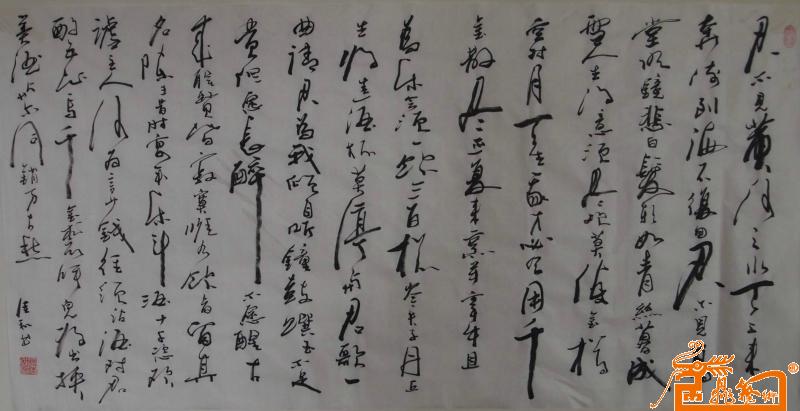 君不见黄河之水天上来
奔流到海不復回君不见高
堂明鏡悲白髮朝如青絲暮成
雪人生得意須盡欢莫使金樽
空对月天生我才必有用千
金散尽还复来烹羊宰牛且
為乐會須一饮三百杯岑夫子丹丘
生将进酒杯莫停与君歌一
曲请君為我倾耳听鐘鼓馔玉不足
贵但愿长醉不愿醒古
来聖贤皆寂寞惟有饮者留其
名陈王昔时宴平乐斗酒十千恣欢
谑主人何為言少錢徑须沽酒对君
酌五花马千金裘呼兒将出换
美酒与尔同銷万古愁